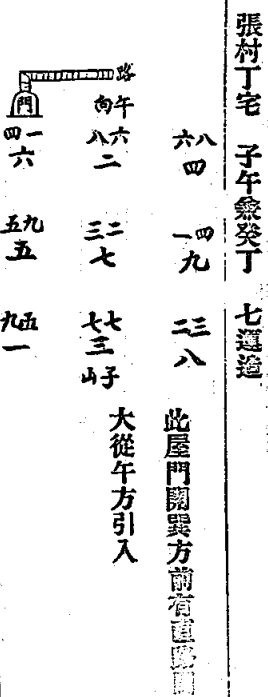 張村丁宅 子午兼癸丁 七運造
八六
四
四一
九
三二
八
此屋門開巽方前有直路闊
大從午方引入
路
午向
六八
二
二三
七
七七
三
子山
門
一四
六
九五
五
五九
一